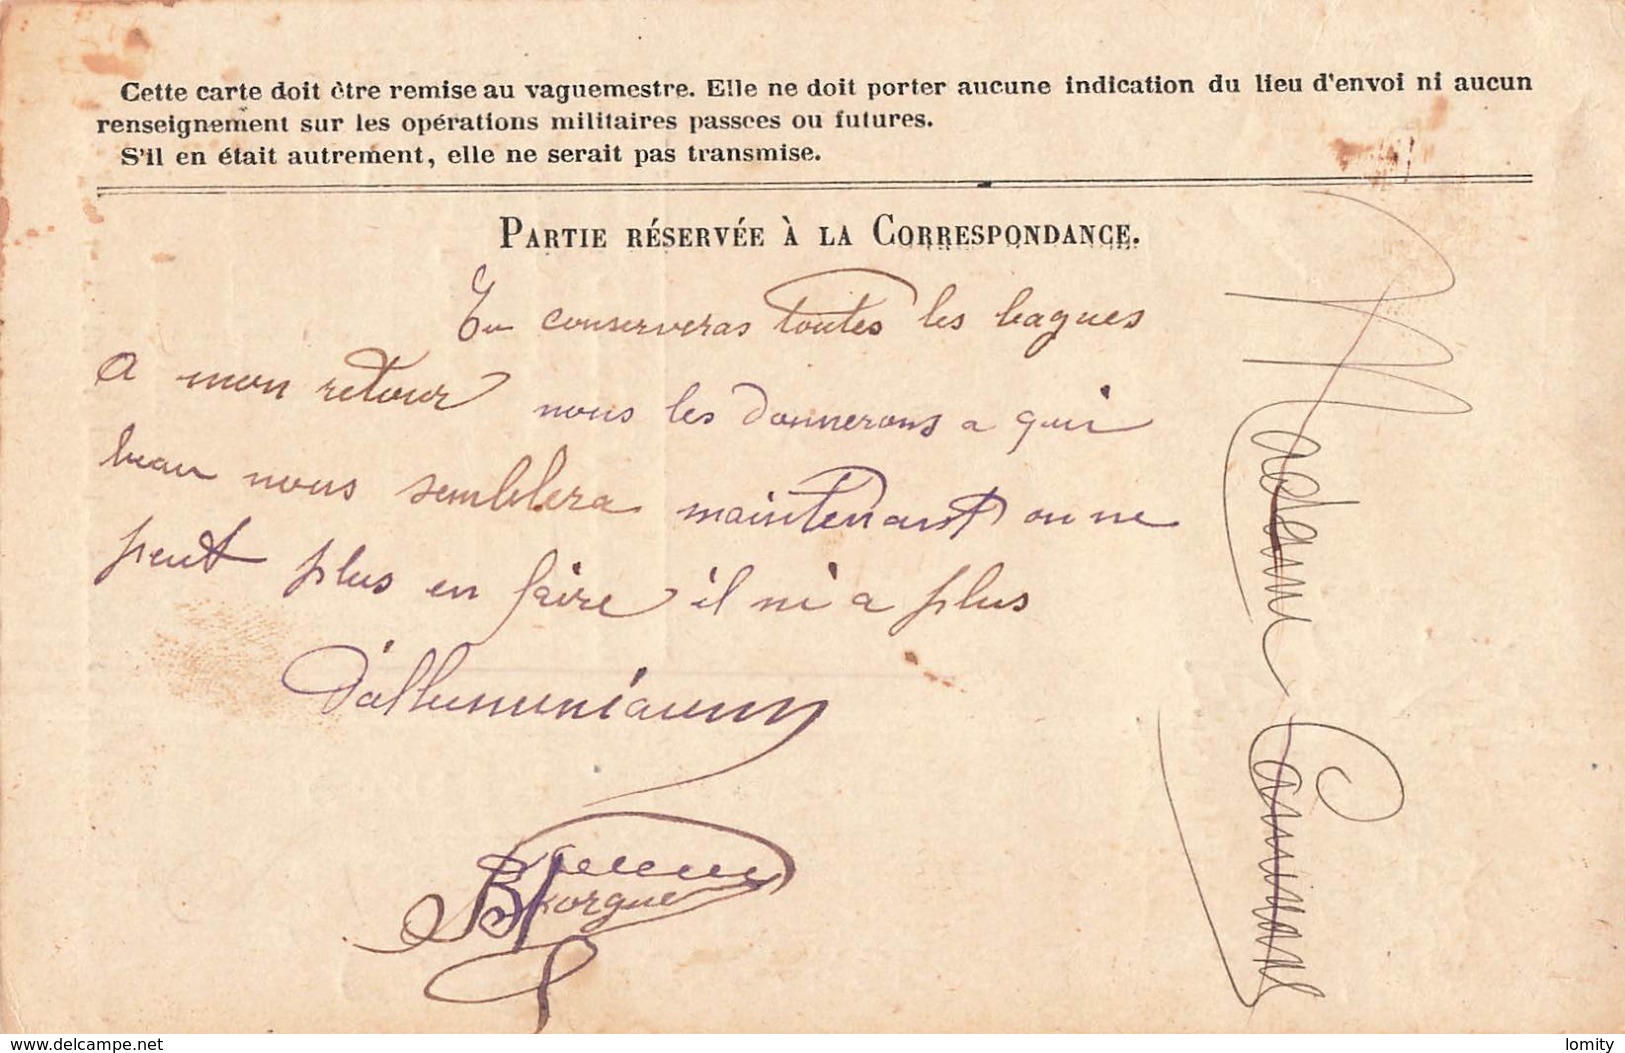 Cette carte doit être remise au vaguemestre. Elle ne doit porter aucune indication du lieu d'envoi ni aucun
renseignement sur les opérations militaires passées ou futures.
S'il en était autrement, elle ne serait pas transmise.
PARTIE RÉSERVÉE À LA CORRESPONDANCE.
Tu conserveras toutes les bagues
a mon retour nous les donnerons a qui
beau nous semblera maintenant on ne
peut plus en faire il ni a plus
d'allumuniaumm
Madame
delcampe.net
lomity